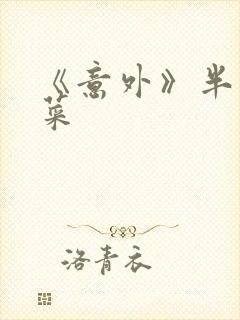 《意外》半
菜
洛青衣